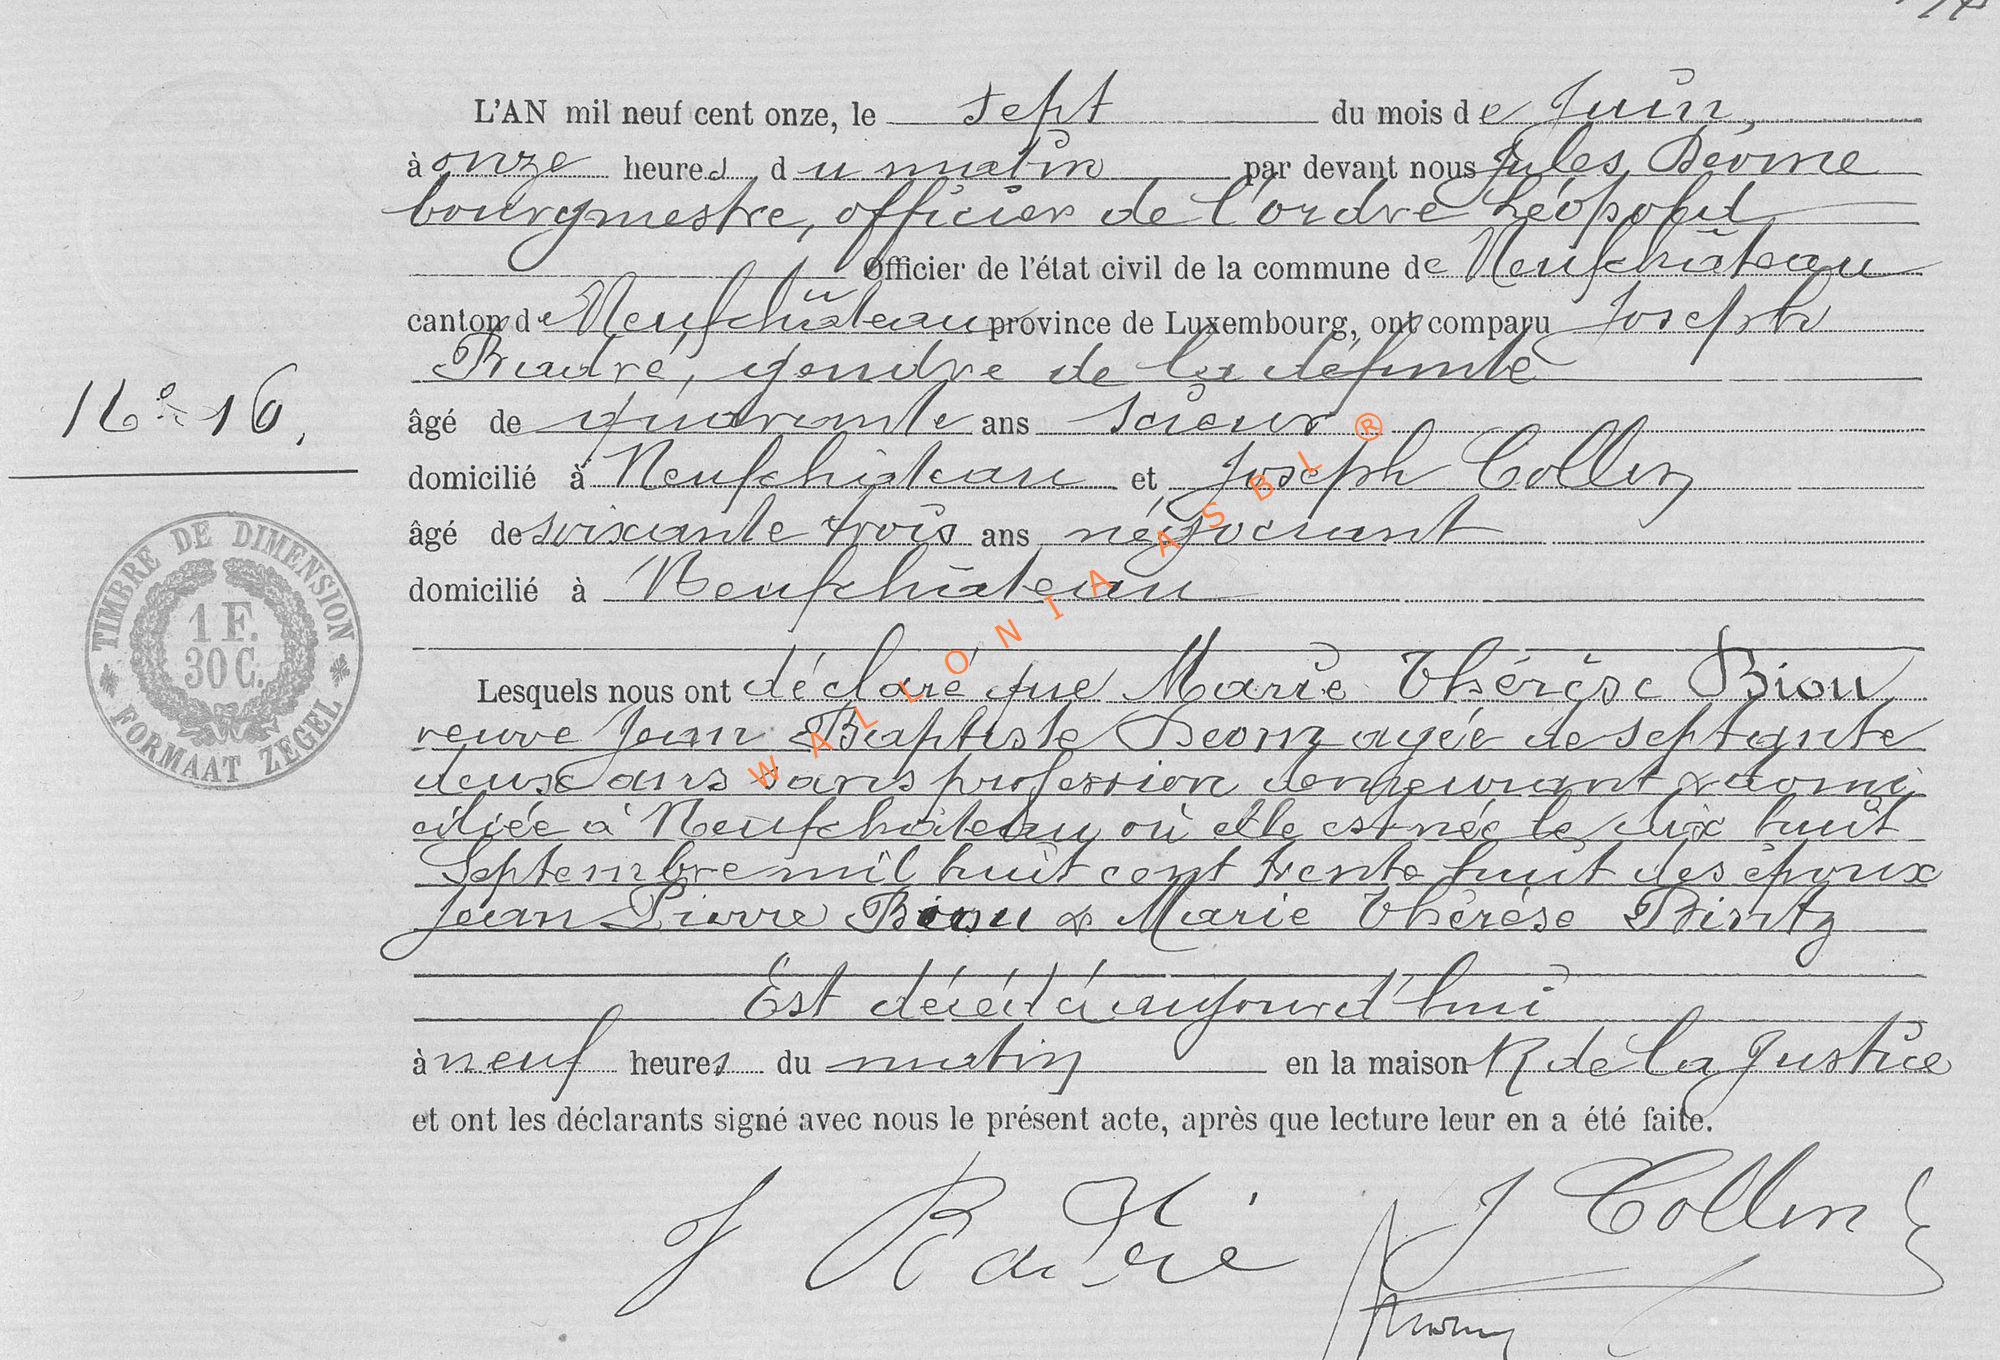 L'AN mil neuf cent onze, le sept du mois de Juin,
à onze heures du matin par devant nous Jules
bourgmestre, officier de l'ordre Léopold
Officier de l'état civil de la commune de Neufchâteau
canton de Neufchâteau province de Luxembourg, ont comparu Joseph
gendre de la défunte
N° 16.
âgé de quarante ans scieur
domicilié à Neufchâteau et Joseph Collin
âgé de soixante trois ans négociant
domicilié à Neufchâteau
TIMBRE DE DIMENSION
1 F.
30 C.
FORMAAT ZEGEL
Lesquels nous ont déclaré que Marie Thérèse Biou
veuve Jean Baptiste Deom agée de septante
deux ans sans profession demeurant & domi
ciliée à Neufchâteau où elle est née le dix huit
Septembre mil huit cent trente huit des époux
Jean Pierre Biou & Marie Thérèse
Est décédée aujourd'hui
à neuf heures du matin en la maison R de la Justice
et ont les déclarants signé avec nous le présent acte, après que lecture leur en a été faite.
J Collin
WALLONIA ASBL ®